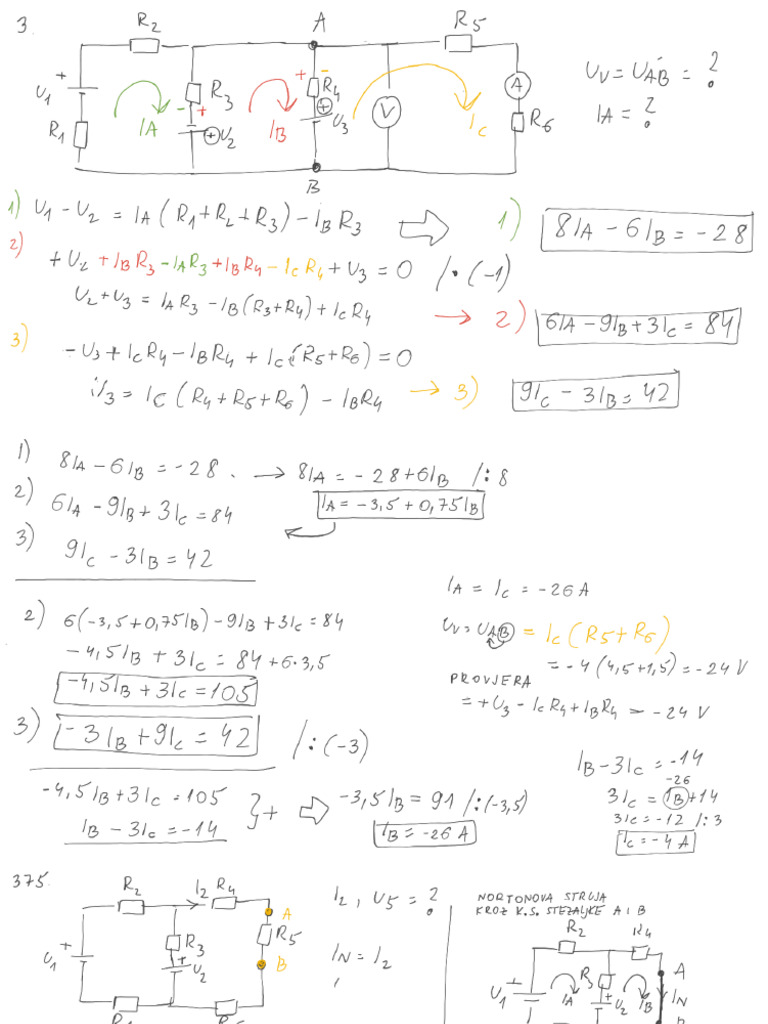 3.
R2
A
R5
U1
+
R1
IA
R3
- +
+ U2
IB
+ -
R4
+
U3
V
IC
A
R6
B
UV = UAB = ?
IA = ?
1) U1 - U2 = IA (R1 + R2 + R3) - IB R3
1) 8IA - 6IB = -28
2) + U2 + IB R3 - IA R3 + IB R4 - IC R4 + U3 = 0 /·(-1)
U2 + U3 = IA R3 - IB (R3 + R4) + IC R4
2) 6IA - 9IB + 3IC = 84
3) - U3 + IC R4 - IB R4 + IC (R5 + R6) = 0
U3 = IC (R4 + R5 + R6) - IB R4
3) 9IC - 3IB = 42
1) 8IA - 6IB = -28
8IA = -28 + 6IB /:8
2) 6IA - 9IB + 3IC = 84
IA = -3,5 + 0,75IB
3) 9IC - 3IB = 42
2) 6(-3,5 + 0,75IB) - 9IB + 3IC = 84
-4,5IB + 3IC = 84 + 6·3,5
-4,5IB + 3IC = 105
3) -3IB + 9IC = 42 /:(-3)
-4,5IB + 3IC = 105
IB - 3IC = -14
} +
-3,5IB = 91 /:(-3,5)
IB = -26 A
IA = IC = -26 A
UV = UAB = IC (R5 + R6)
= -4 (4,5 + 1,5) = -24 V
PROVJERA
= + U3 - IC R4 + IB R4 = -24 V
IB - 3IC = -14
-26
3IC = IB + 14
3IC = -12 /:3
IC = -4 A
375.
R2
I2 R4
A
R5
U1
+
R3
+
U2
B
I2, U5 = ?
IN = I2
NORTONOVA STRUJA
KROZ K.S. STEZALJKE A I B
R2
R4
A
+
U1
IA
R3
+
U2
IB
IN